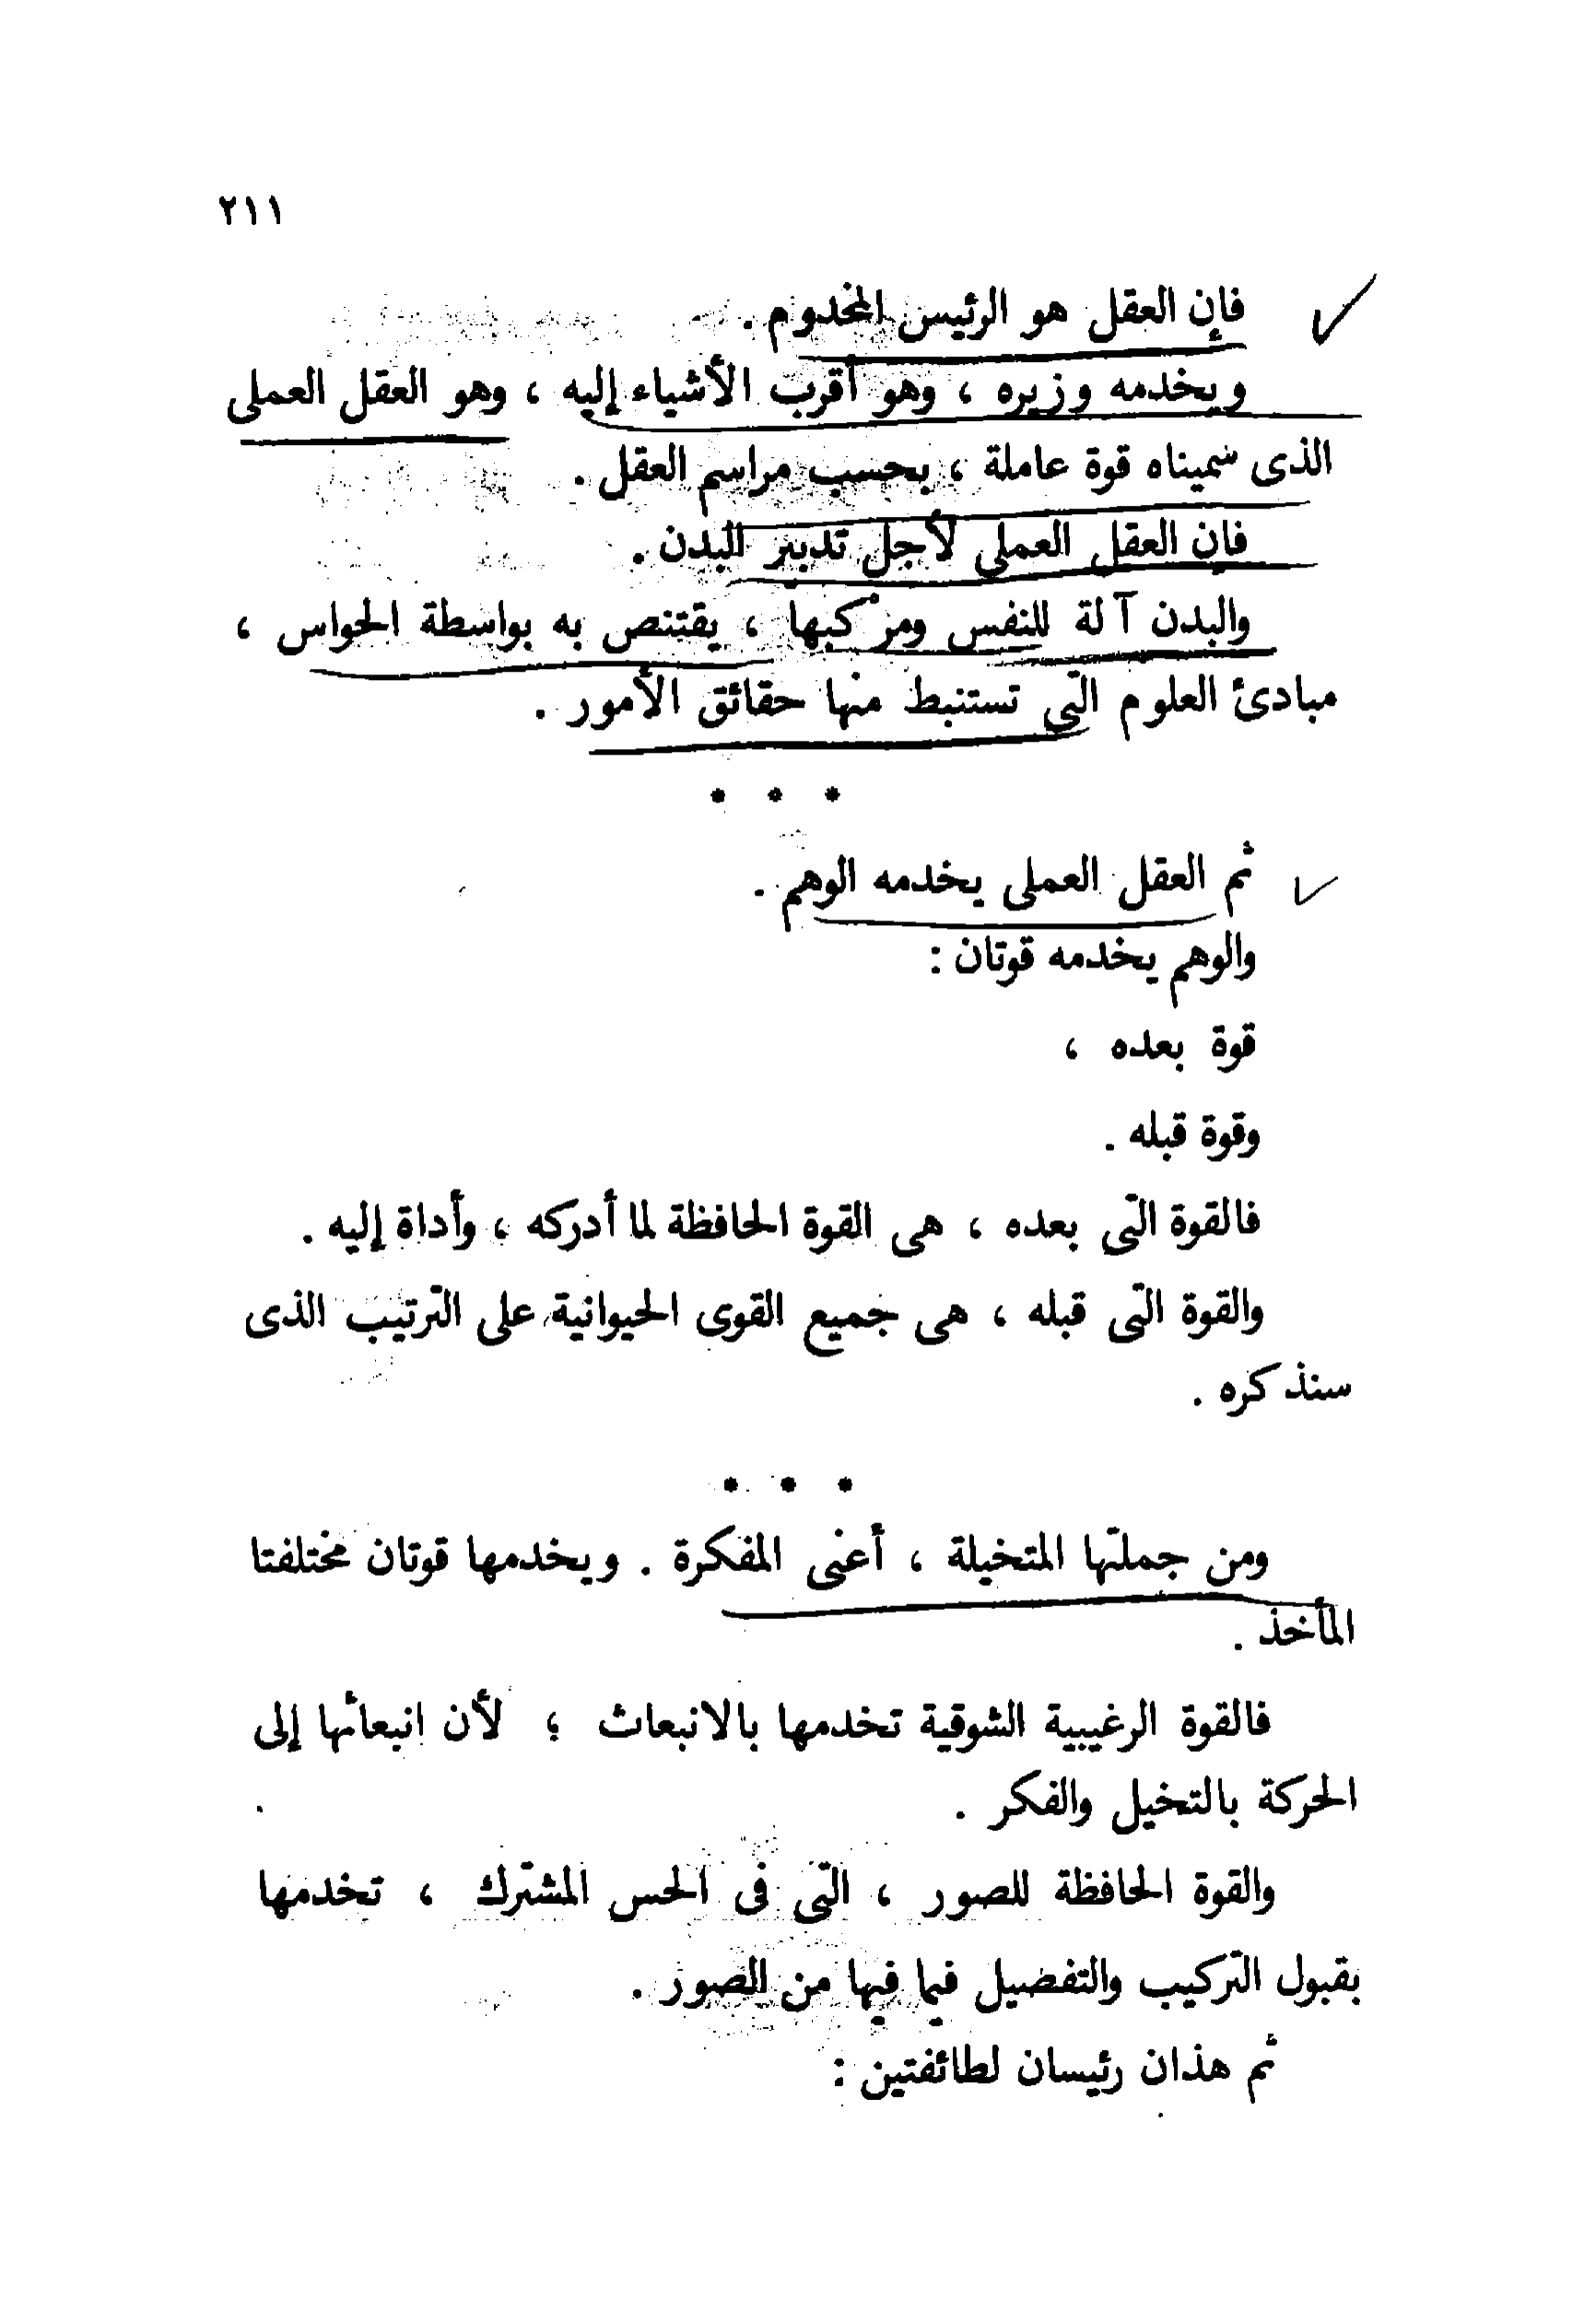 ٢١١
فإن العقل هو الرئيس المخدوم .
ويخدمه وزيره ، وهو أقرب الأشياء إليه ، وهو العقل العملى
الذى سميناه قوة عاملة ، بحسب مراسم العقل .
فإن العقل العملى لأجل تدبير البدن .
والبدن آلة للنفس ومركبها ، يقتنص به بواسطة الحواس ،
مبادئ العلوم التى تستنبط منها حقائق الأمور .
* * *
ثم العقل العملى يخدمه الوهم .
والوهم يخدمه قوتان :
قوة بعده ،
وقوة قبله .
فالقوة التى بعده ، هى القوة الحافظة لما أدركه ، وأداة إليه .
والقوة التى قبله ، هى جميع القوى الحيوانية على الترتيب الذى
سنذكره .
* * *
ومن جملتها المتخيلة ، أعنى المفكرة . ويخدمها قوتان مختلفتا
المأخذ .
فالقوة الرغيبية الشوقية تخدمها بالانبعاث ؛ لأن انبعاثها إلى
الحركة بالتخيل والفكر .
والقوة الحافظة للصور ، التى فى الحس المشترك ، تخدمها
بقبول التركيب والتفضيل فيما فيها من الصور .
ثم هذان رئيسان لطائفتين :